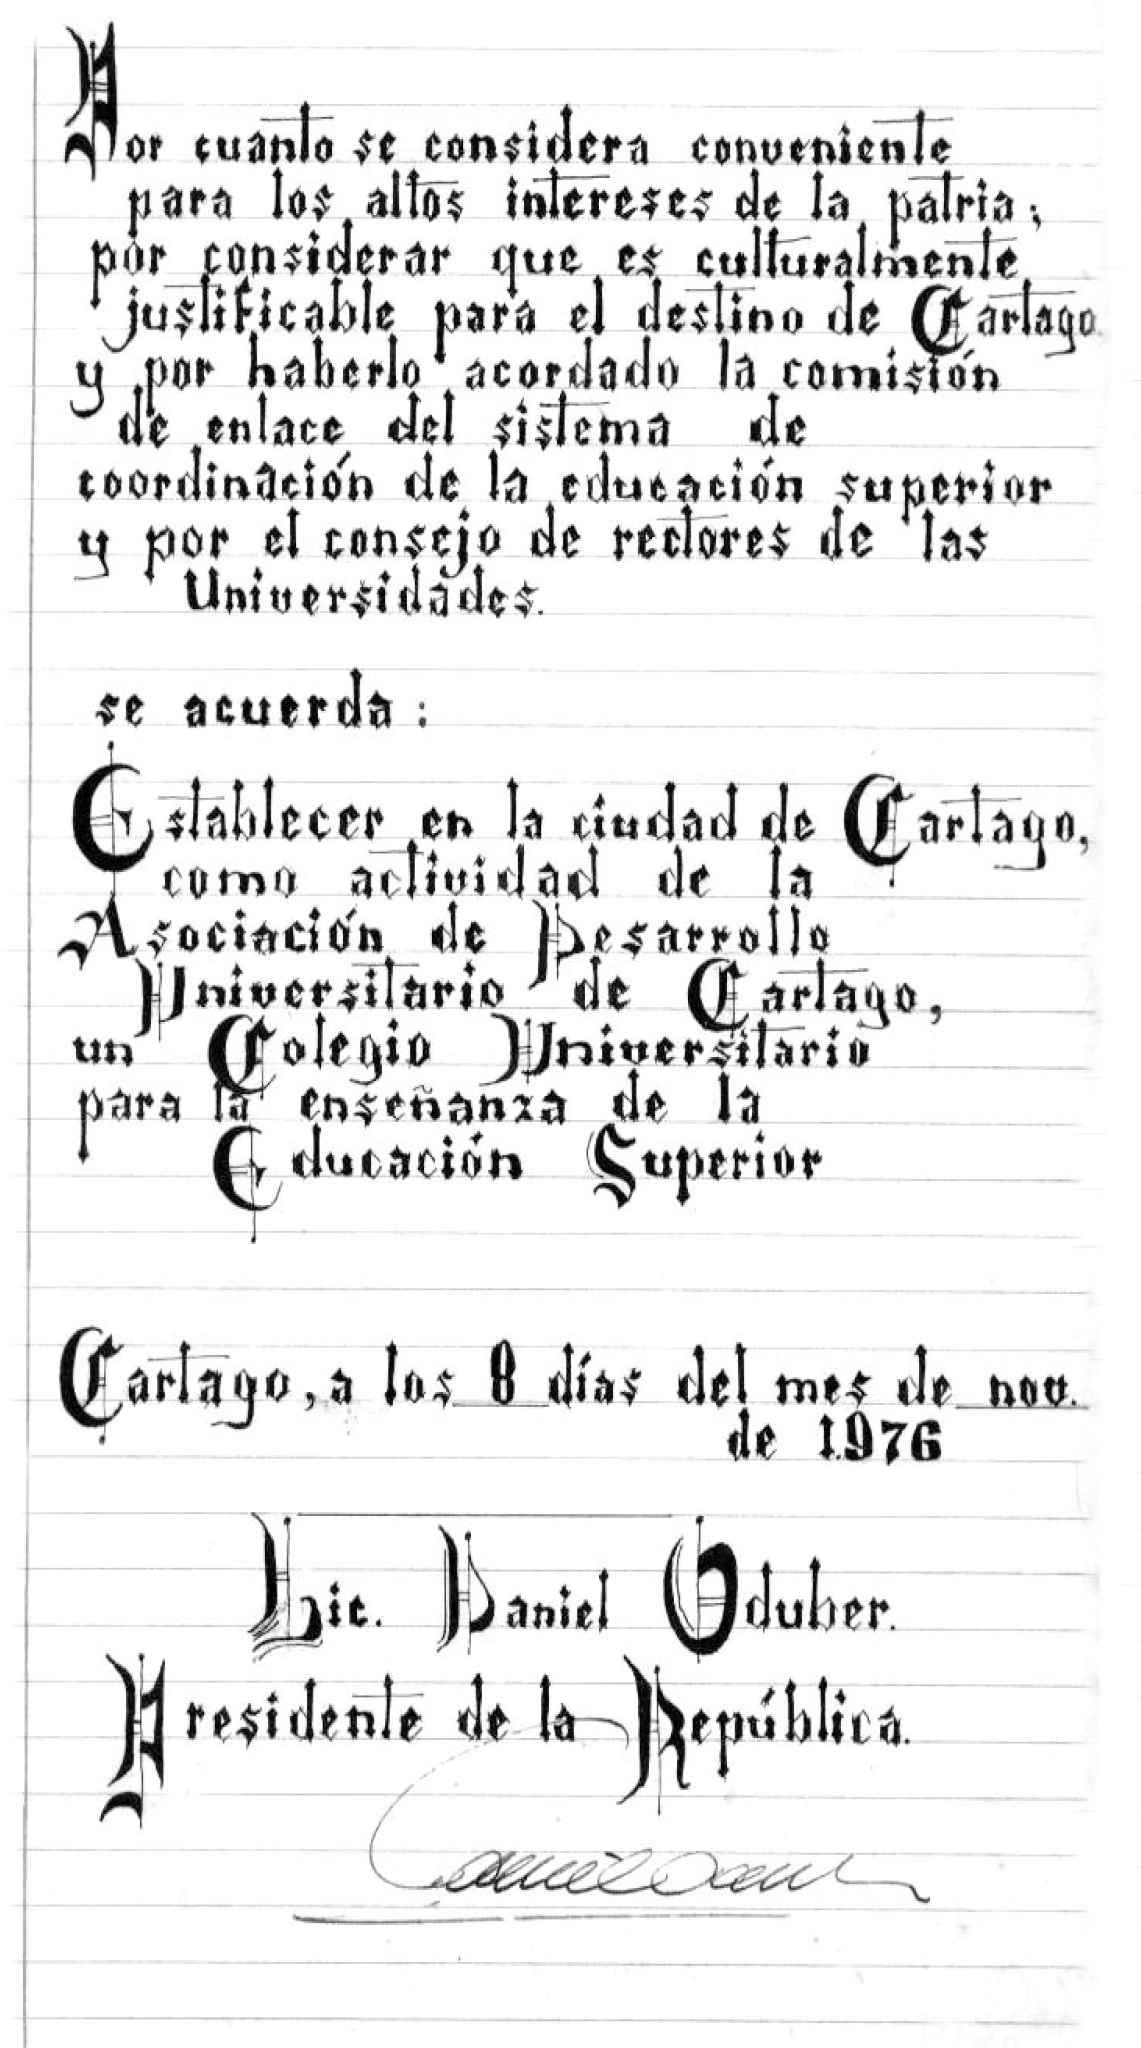 Por cuanto se considera conveniente
para los altos intereses de la patria;
por considerar que es culturalmente
justificable para el destino de Cartago.
y por haberlo acordado la comisión
de enlace del sistema de
coordinación de la educación superior
y por el consejo de rectores de las
Universidades.
se acuerda:
Establecer en la ciudad de Cartago,
como actividad de la
Asociación de Desarrollo
Universitario de Cartago,
un Colegio Universitario
para la enseñanza de la
Educación Superior
Cartago, a los 8 días del mes de nov.
de 1.976
Lic. Daniel Oduber.
Presidente de la República.